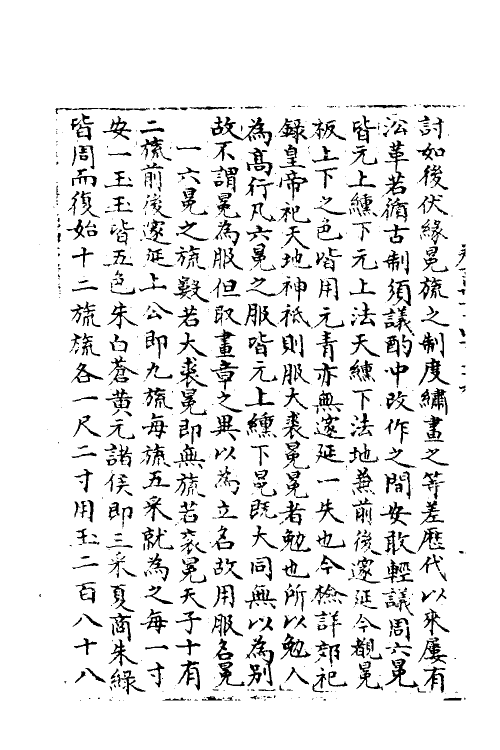 討如後伏緣冕旒之制度繡畫之等差歷代以來屢有
沿革若循古制須議酌中改作之間安敢輕議周六冕
皆元上纁下元上法天纁下法地兼前後邃延今覩冕
板上下之色皆用元青亦無邃延一失也今檢詳郊祀
錄皇帝祀天地神祇則服大裘冕冕者勉也所以勉人
為高行凡六冕之服皆元上纁下冕既大同無以為別
故不謂冕為服但取畫章之異以為立名故用服名冕
一六冕之旒數若大裘冕即無旒若衮冕天子十有
二旒前後邃延上公即九旒每旒五采就為之每一寸
安一玉玉皆五色朱白蒼黃元諸侯即三采夏商朱綠
皆周而復始十二旒旒各一尺二寸用玉二百八十八